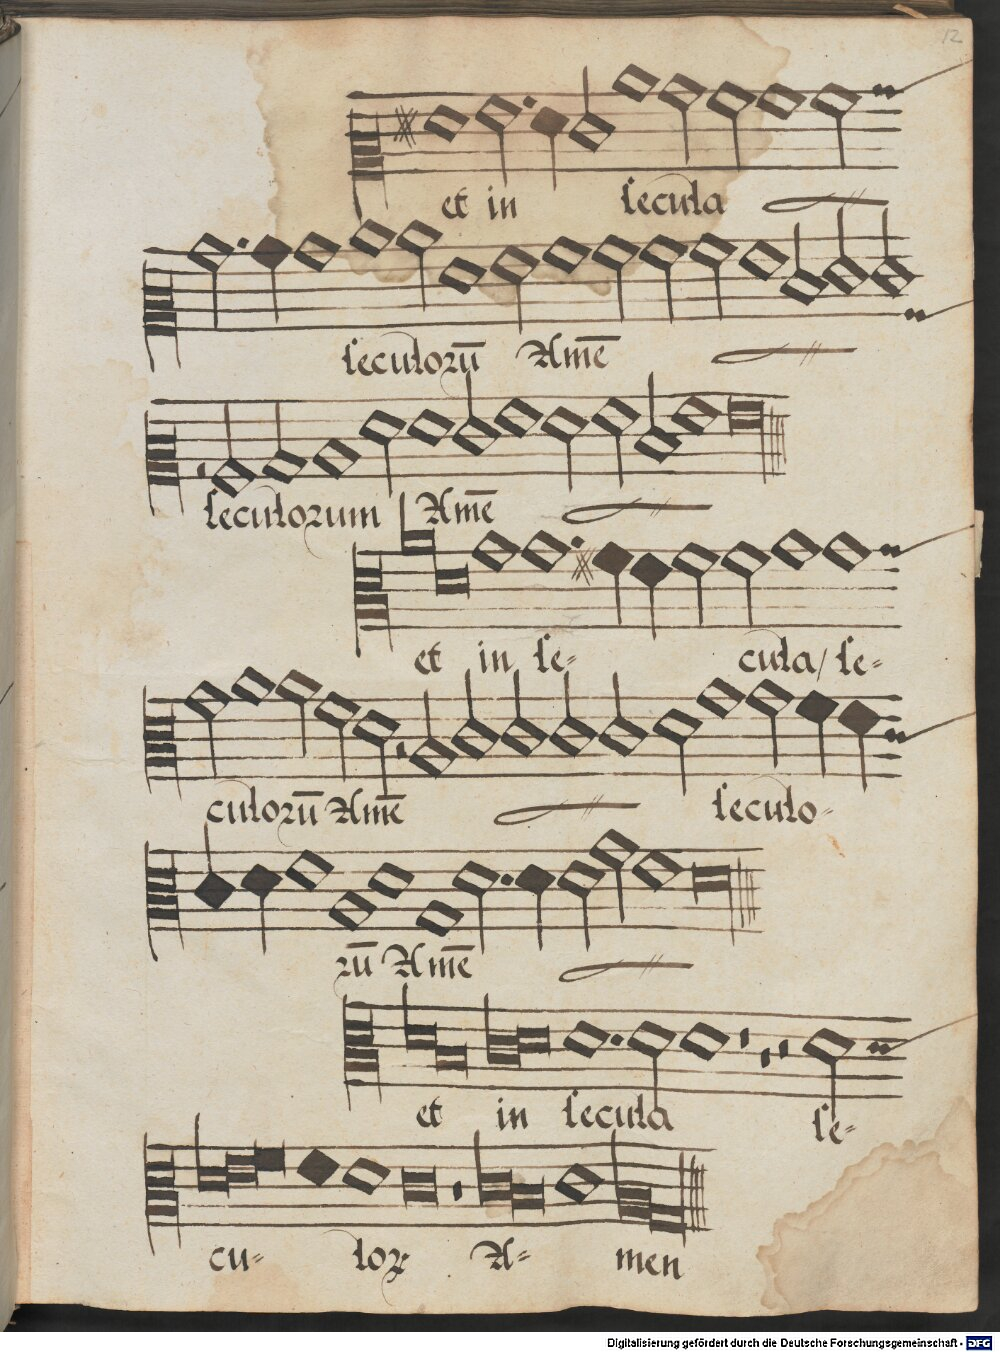 12
et in secula
seculorū Amē
seculorum Amē
et in se= cula/ se=
culorū Amē seculo=
rū Amē
et in secula se=
cu= loꝝ A= men
Digitalisierung gefördert durch die Deutsche Forschungsgemeinschaft - DFG